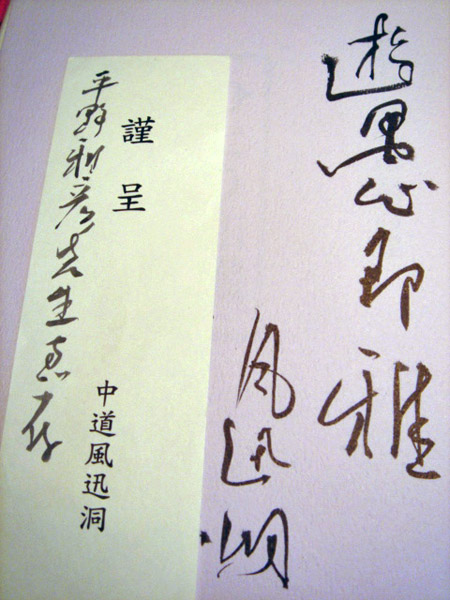 遊愚即雅
風迅洞
謹呈
中道風迅洞
平野雅彦先生恵存